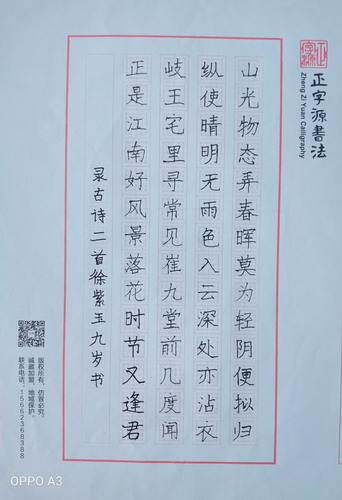 正字源書法
Zheng Zi Yuan Calligraphy
山光物态弄春晖莫为轻阴便拟归
纵使晴明无雨色入云深处亦沾衣
岐王宅里寻常见崔九堂前几度闻
正是江南好风景落花时节又逢君
录古诗二首徐紫玉九岁书
版权所有，仿冒必究。
诚邀加盟，地域保护。
联系电话：15662368388
OPPO A3